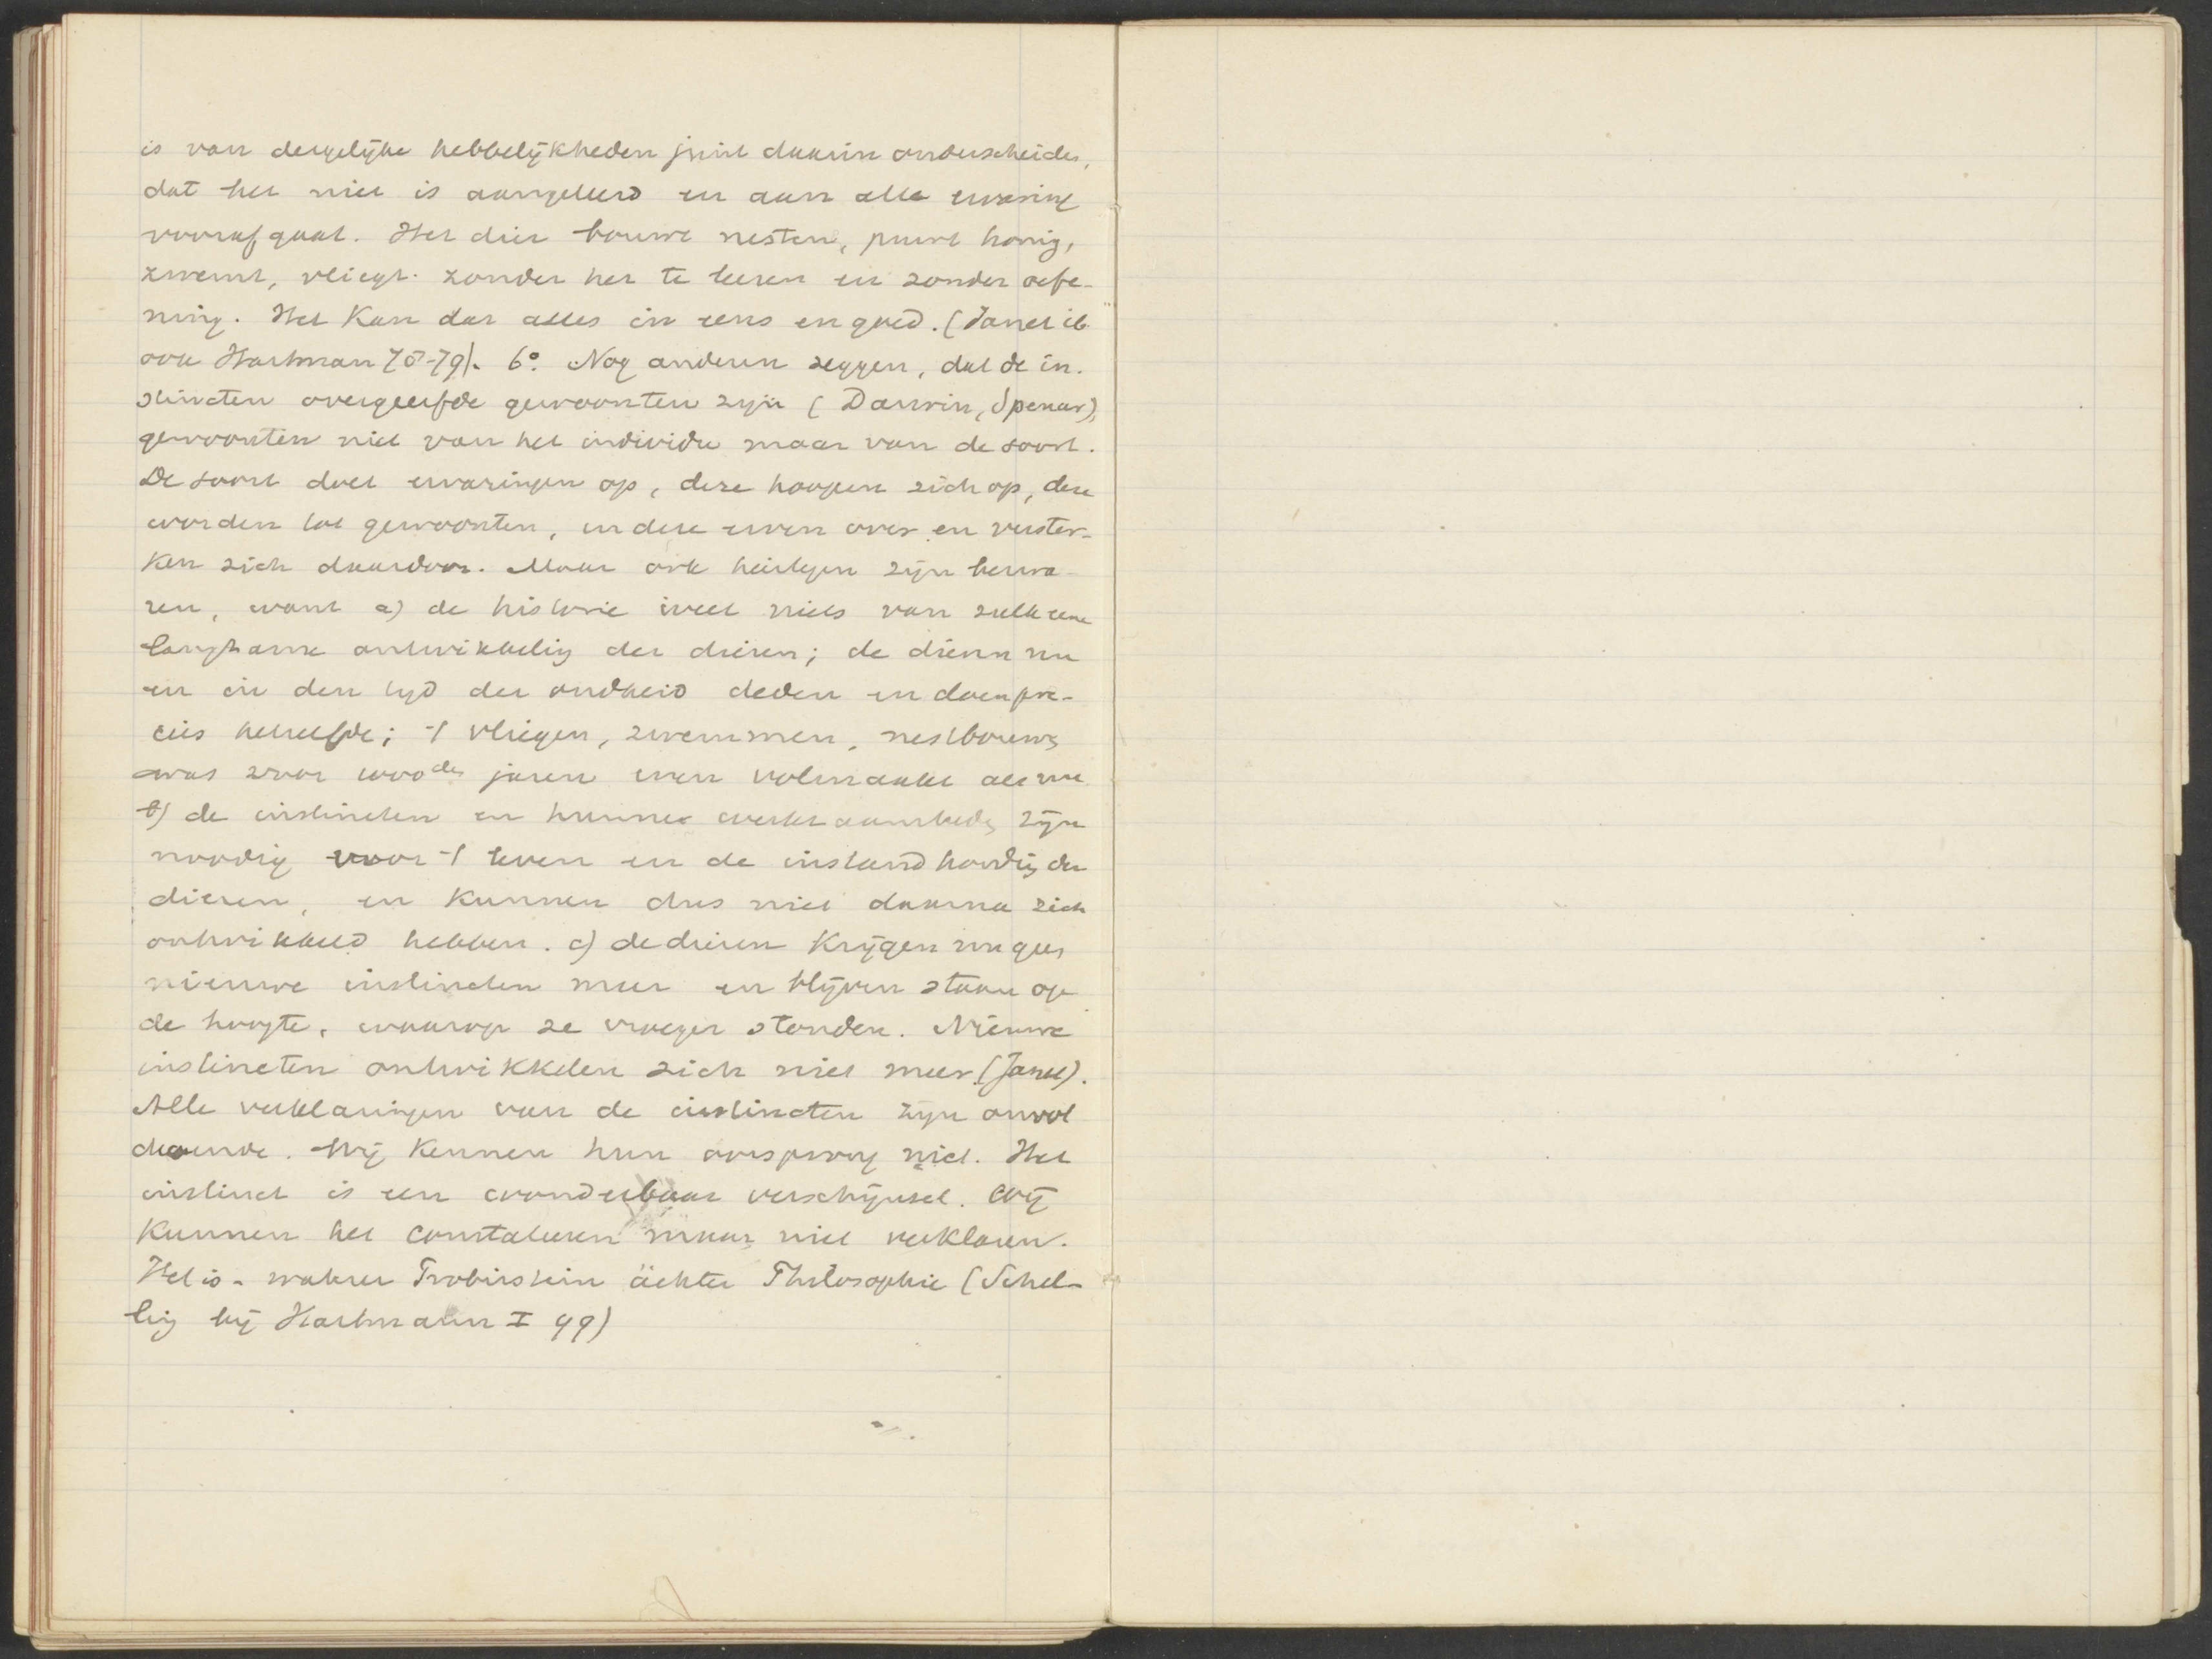 is van dergelijke hebbelijkheden juist daarin onderscheiden,
dat het niet is aangeleerd en aan alle ervaring
voorafgaat. Het dier bouwt nesten, puurt honig,
zwemt, vliegt zonder het te leeren en zonder oefe-
ning. Het kan dat alles in eens en goed. (Janet ib
ook Hartman 78-79). 6°. Nog anderen zeggen, dat de in-
stincten overgeerfde gewoonten zijn (Darwin, Spencer),
gewoonten niet van het individu maar van de soort.
De soort doet ervaringen op, deze hoopen zich op, deze
worden tot gewoonten, en deze erven over en verster-
ken zich daardoor. Maar ook hiertegen zijn bezwa-
ren, want a) de historie weet niets van zulk eene
langzame ontwikkeling der dieren; de dieren nu
en in den tijd der oudheid deden en doen pre-
cies hetzelfde; 't vliegen, zwemmen, nestbouwen
was voor 1000den jaren even volmaakt als nu.
b) de instincten en hunne werkzaamheden zijn
noodig voor 't leven en de instandhouding der
dieren, en kunnen dus niet daarna zich
ontwikkeld hebben. c) de dieren krijgen nu geen
nieuwe instincten meer en blijven staan op
de hoogte, waarop ze vroeger stonden. Nieuwe
instincten ontwikkelen zich niet meer (Janet).
Alle verklaringen van de instincten zijn onvol
doende. Wij kennen hun oorsprong niet. Het
instinct is een wonderbaar verschijnsel. Wij
kunnen het constateeren maar niet verklaren.
Het is - wahrer Probirstein ächter Philosophie (Schel-
ling bij Hartmann I 99)